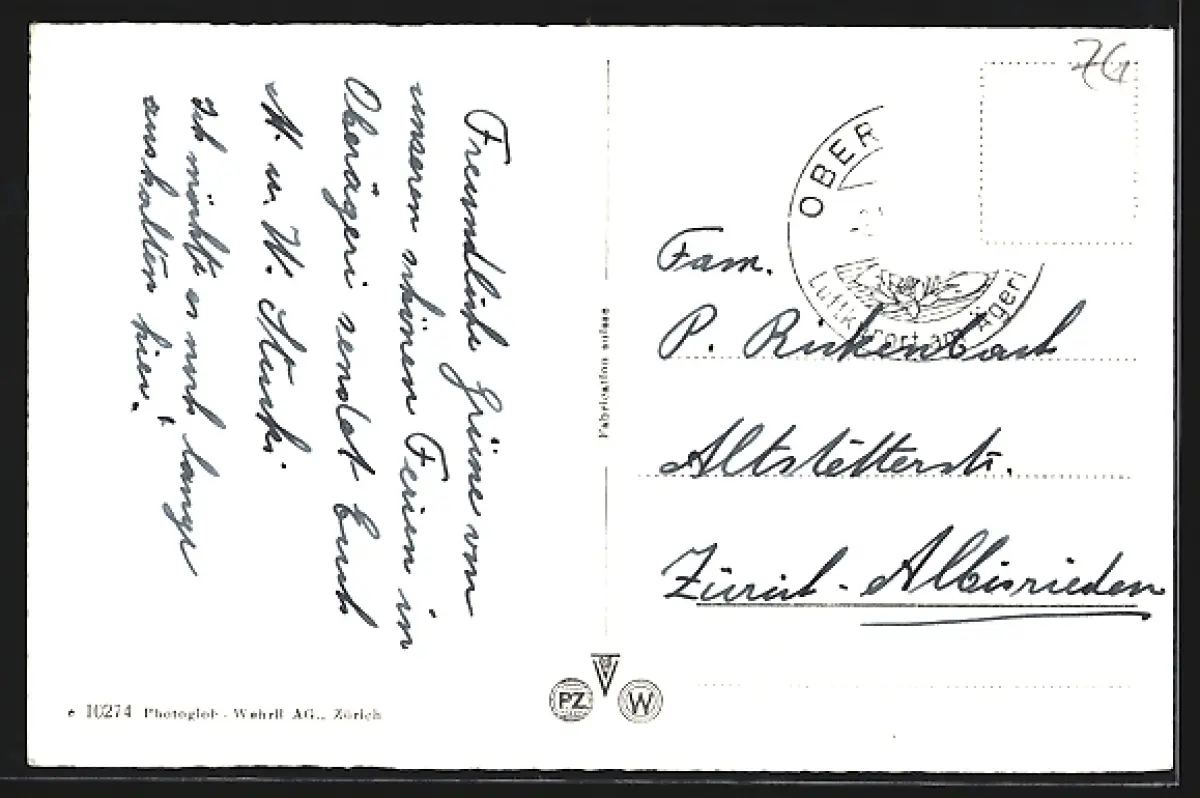 Freundliche Grüsse von
unseren schönen Ferien in
Oberägeri sendet Euch
M. u. W. Stucki.
ich möchte es noch lange
aushalten hier!
Fabrication suisse
ZG
OBER
Luftkurort am Ägeri
Fam.
P. Rickenbach
Altstetterstr.
Zürich-Albisrieden
PZ W
e 10274 Photoglob-Wehrli AG., Zürich